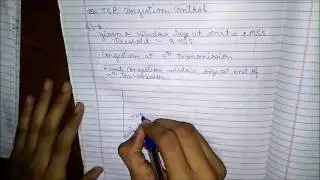 TCP Congestion Control
given : Window Size at start = 2 MSS
Threshold = 8 MSS
Congestion at 5th Transmission
Find Congestion window size at end of
10th Transmission.